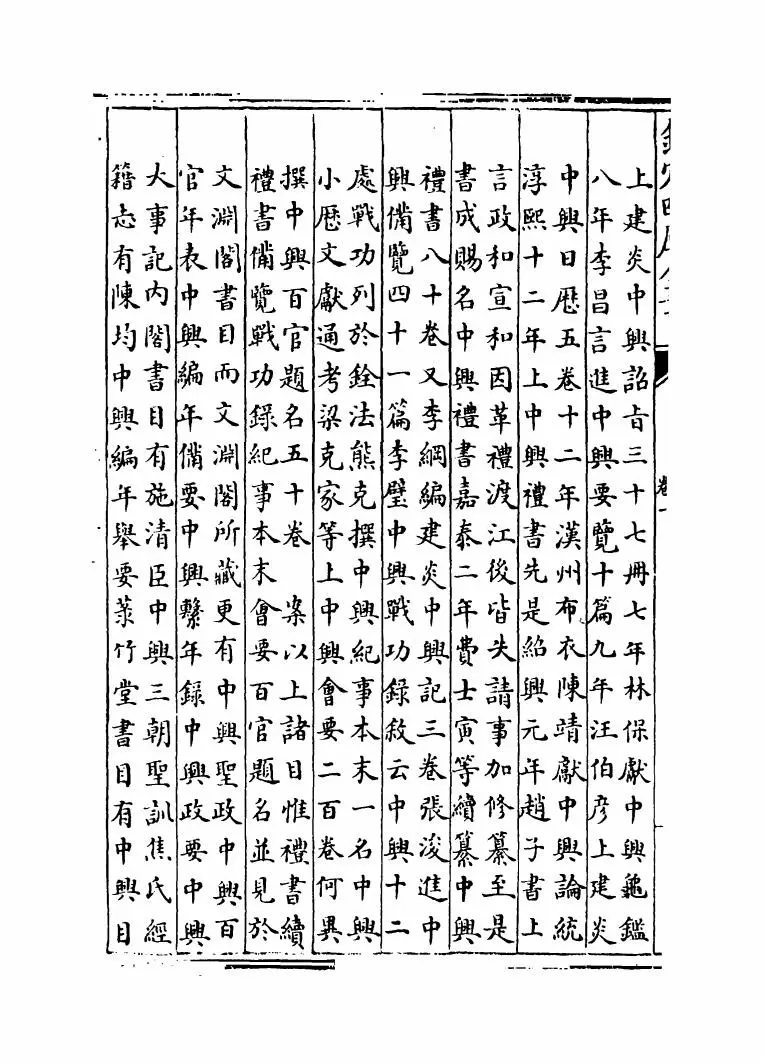 上建炎中興詔旨三十七冊七年林保獻中興龜鑑
八年李昌言進中興要覽十篇九年汪伯彦上建炎
中興日厯五卷十二年漢州布衣陳靖獻中興論統
淳熙十二年上中興禮書先是紹興元年趙子書上
言政和宣和因革禮渡江後皆失請事加修纂至是
書成賜名中興禮書嘉泰二年費士寅等續纂中興
禮書八十卷又李綱編建炎中興記三卷張浚進中
興備覽四十一篇李璧中興戰功録敘云中興十二
處戰功列於銓法熊克撰中興紀事本末一名中興
小厯文獻通考梁克家等上中興會要二百卷何異
撰中興百官題名五十卷　案以上諸目惟禮書續
禮書備覽戰功録紀事本末會要百官題名並見於
文淵閣書目而文淵閣所藏更有中興聖政中興百
官年表中興編年備要中興繫年録中興政要中興
大事記内閣書目有施清臣中興三朝聖訓焦氏經
籍志有陳均中興編年舉要菉竹堂書目有中興目